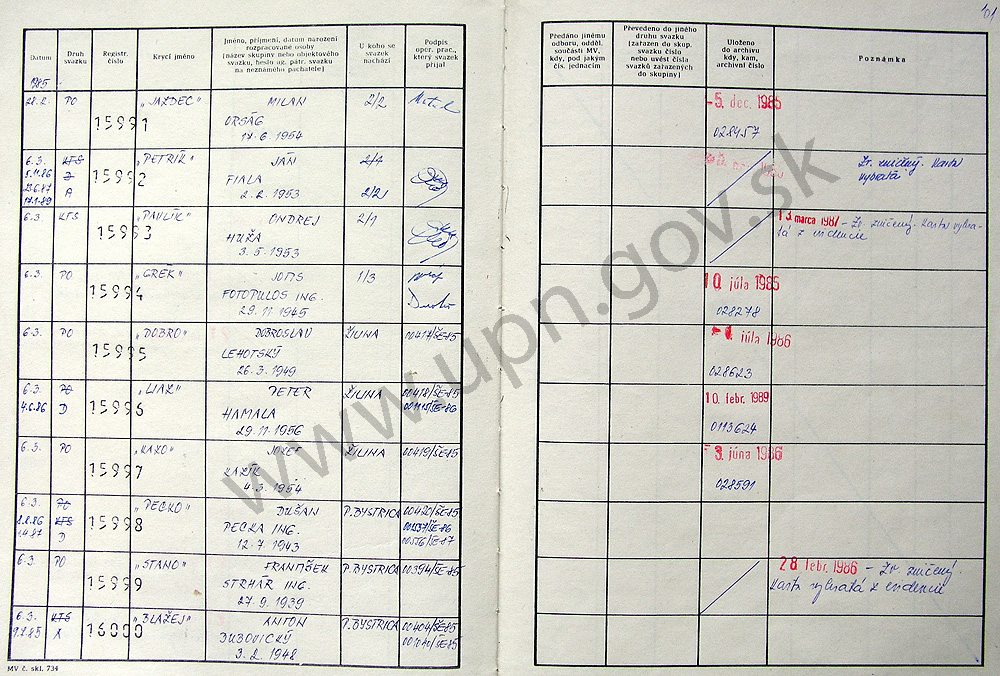 101
Datum
Druh svazku
Registr. číslo
Krycí jméno
Jméno, příjmení, datum narození
rozpracované osoby
(název skupiny nebo objektového
svazku, heslo ag. pátr. svazku
na neznámého pachatele)
U koho se
svazek
nachází
Podpis
oper. prac.,
který svazek
přijal
Předáno jinému
odboru, odděl.
součásti MV,
kdy, pod jakým
čís. jednacím
Převedeno do jiného
druhu svazku
(zařazen do skup.
svazku číslo
nebo uvést čísla
svazků zařazených
do skupiny)
Uloženo
do archivu
kdy, kam,
archivní číslo
Poznámka
1985
28.2. PO 15991 "JAZDEC" MILAN 2/2
ORSÁG
17.6. 1954
5. dec. 1985
028457
6.3. KTS 15992 "PETRÍK" JÁN 2/1
5.11.86
23.6.87 FIALA
17.1.89 A 2.2. 1953 2/2
Zv. zničený. Karta
vybratá
6.3 KTS 15993 "PAVLÍK" ONDREJ 2/1
HUŽA
3.5. 1953
13. marca 1987 - Zv. zničený. Karta vybra-
tá z evidencie
6.3. PO 15994 "GRÉK" 1/3
FOTOPULOS ING.
29.11. 1945
10. júla 1985
028278
6.3. PO 15995 "DOBRO" DOBROSLAV ŽILINA 00417/ŠE-85
LEHOTSKÝ
26.3. 1949
júla 1986
028623
6.3. PO 15996 "LIAZ" PETER ŽILINA 00418/ŠE-85
4.6.86 D HAMALA 001115/ŠE-86
29.11. 1956
10. febr. 1989
0113624
6.3. PO 15997 "KAKO" JOZEF ŽILINA 00419/ŠE-85
4.3. 1954
3. júna 1986
028591
6.3. PO 15998 "PECKO" DUŠAN P. BYSTRICA 00420/ŠE-85
8.8.86 KTS PECKA ING. 00537/ŠE-86
1.4.87 D 12.7. 1943 00556/ŠE-87
6.3. PO 15999 "STANO" FRANTIŠEK P. BYSTRICA 00394/ŠE-85
STRHÁR ING.
27.9. 1939
28. febr. 1986 - Zv. zničený
Karta vybratá z evidencie
6.3. KTS 16000 "BLAŽEJ" ANTON P. BYSTRICA 00404/ŠE-85
9.7.85 A DUBOVICKÝ 001040/ŠE-85
3.2. 1948
MV č. skl. 734
www.upn.gov.sk